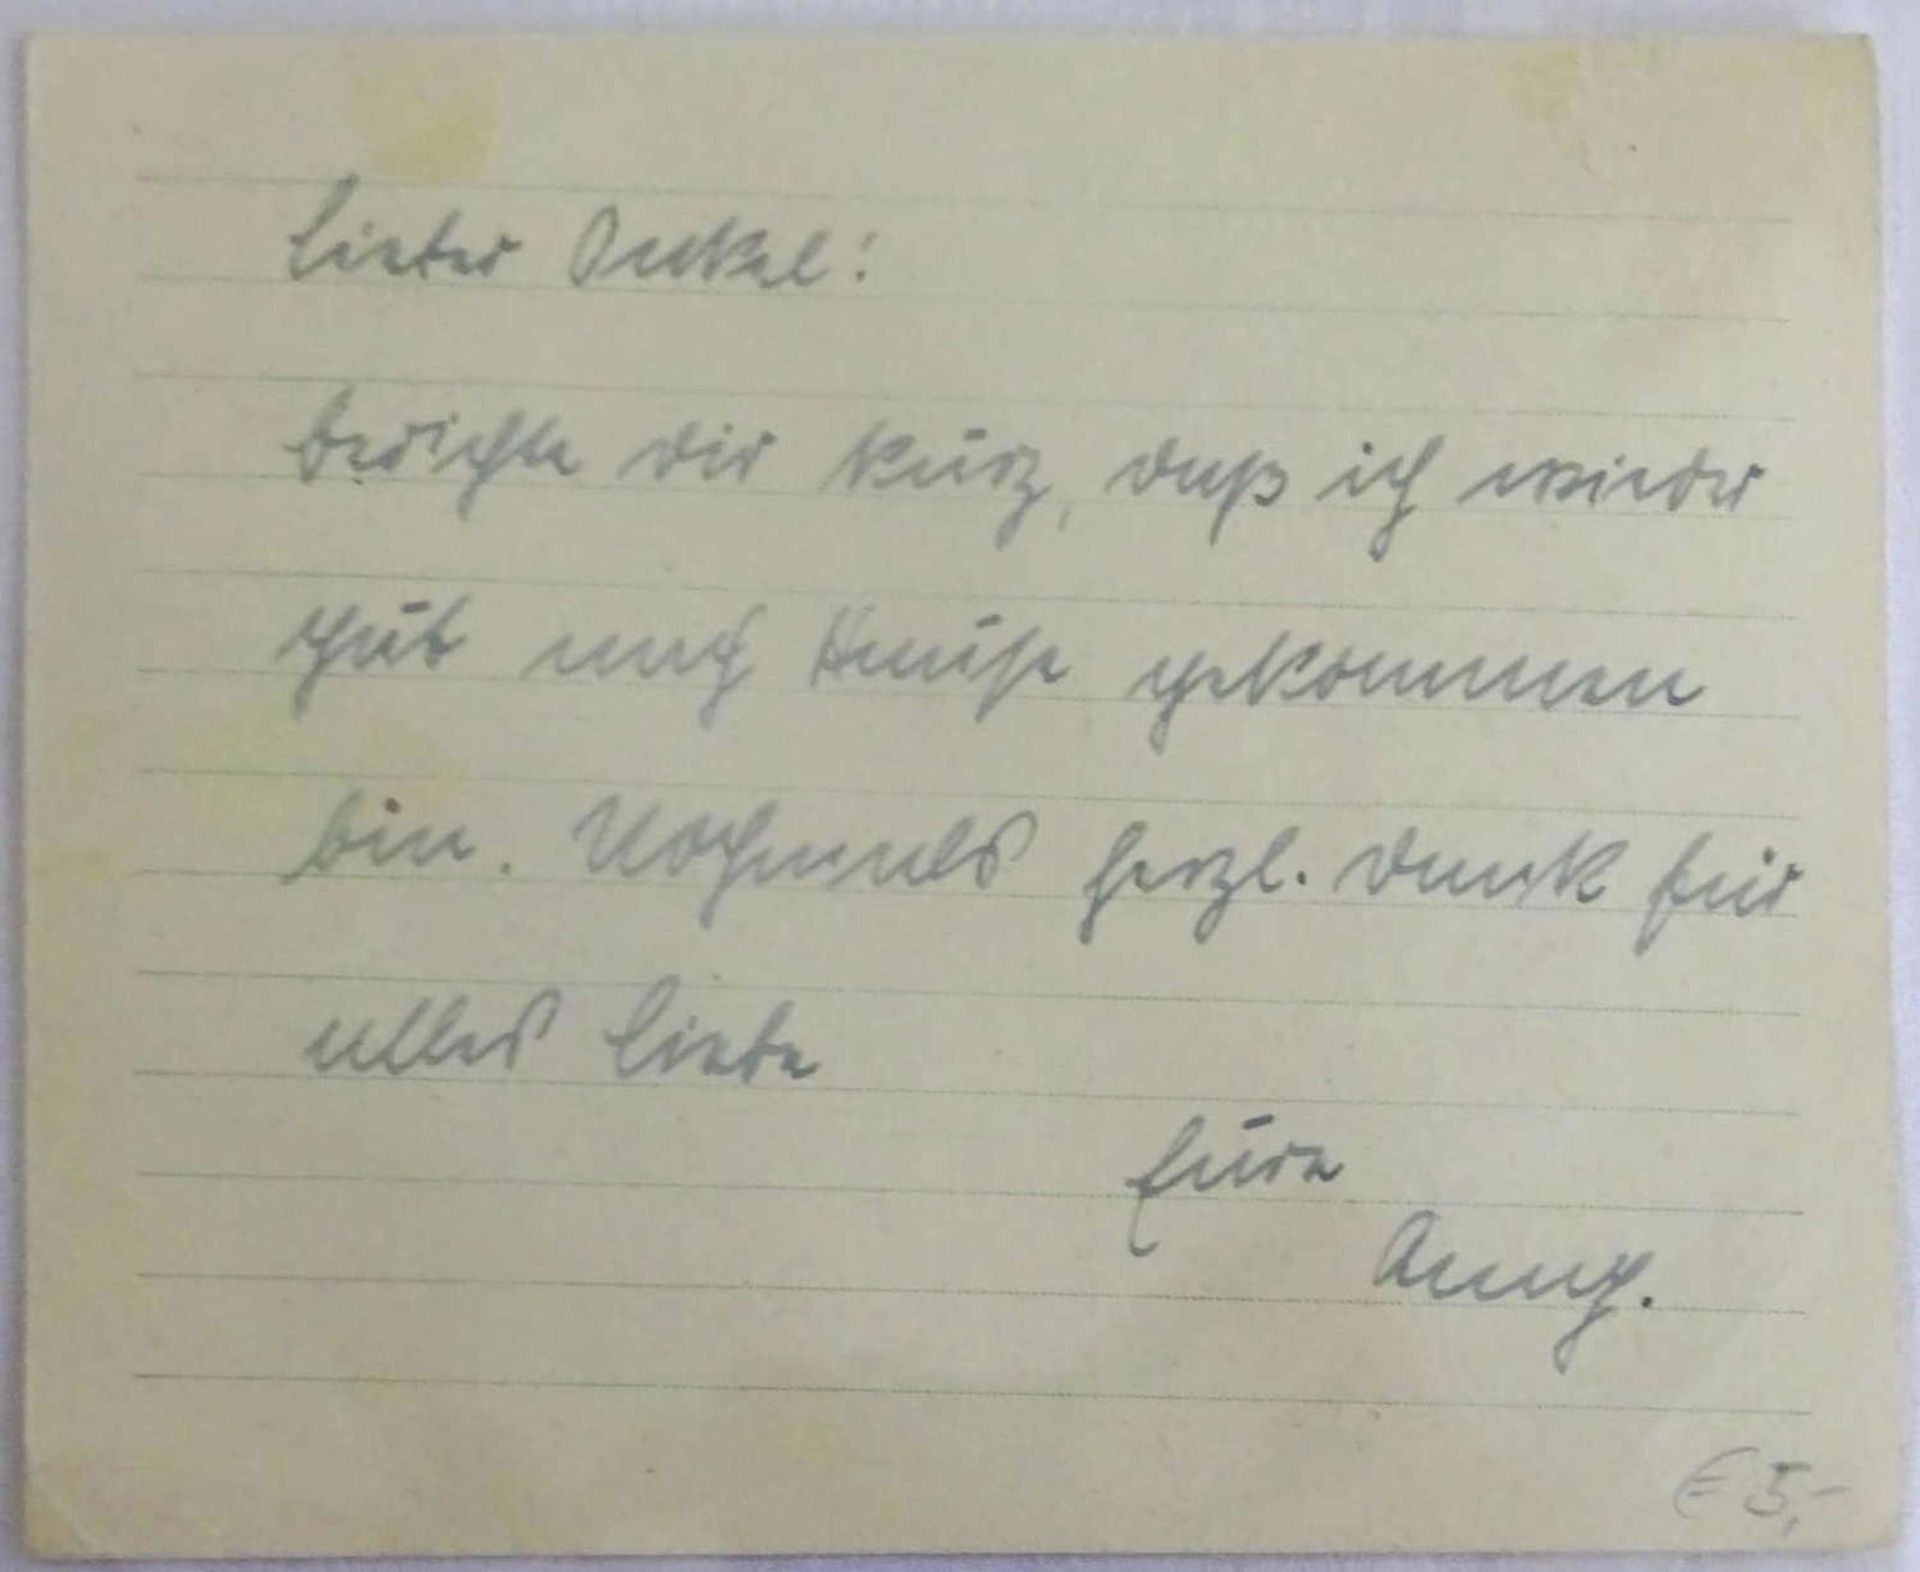 Lieber Onkel!
berichte dir kurz, daß ich wieder
gut nach Hause gekommen
bin. Nochmals herzl. Dank für
alles Liebe
Eure
Anny.
€ 5,-